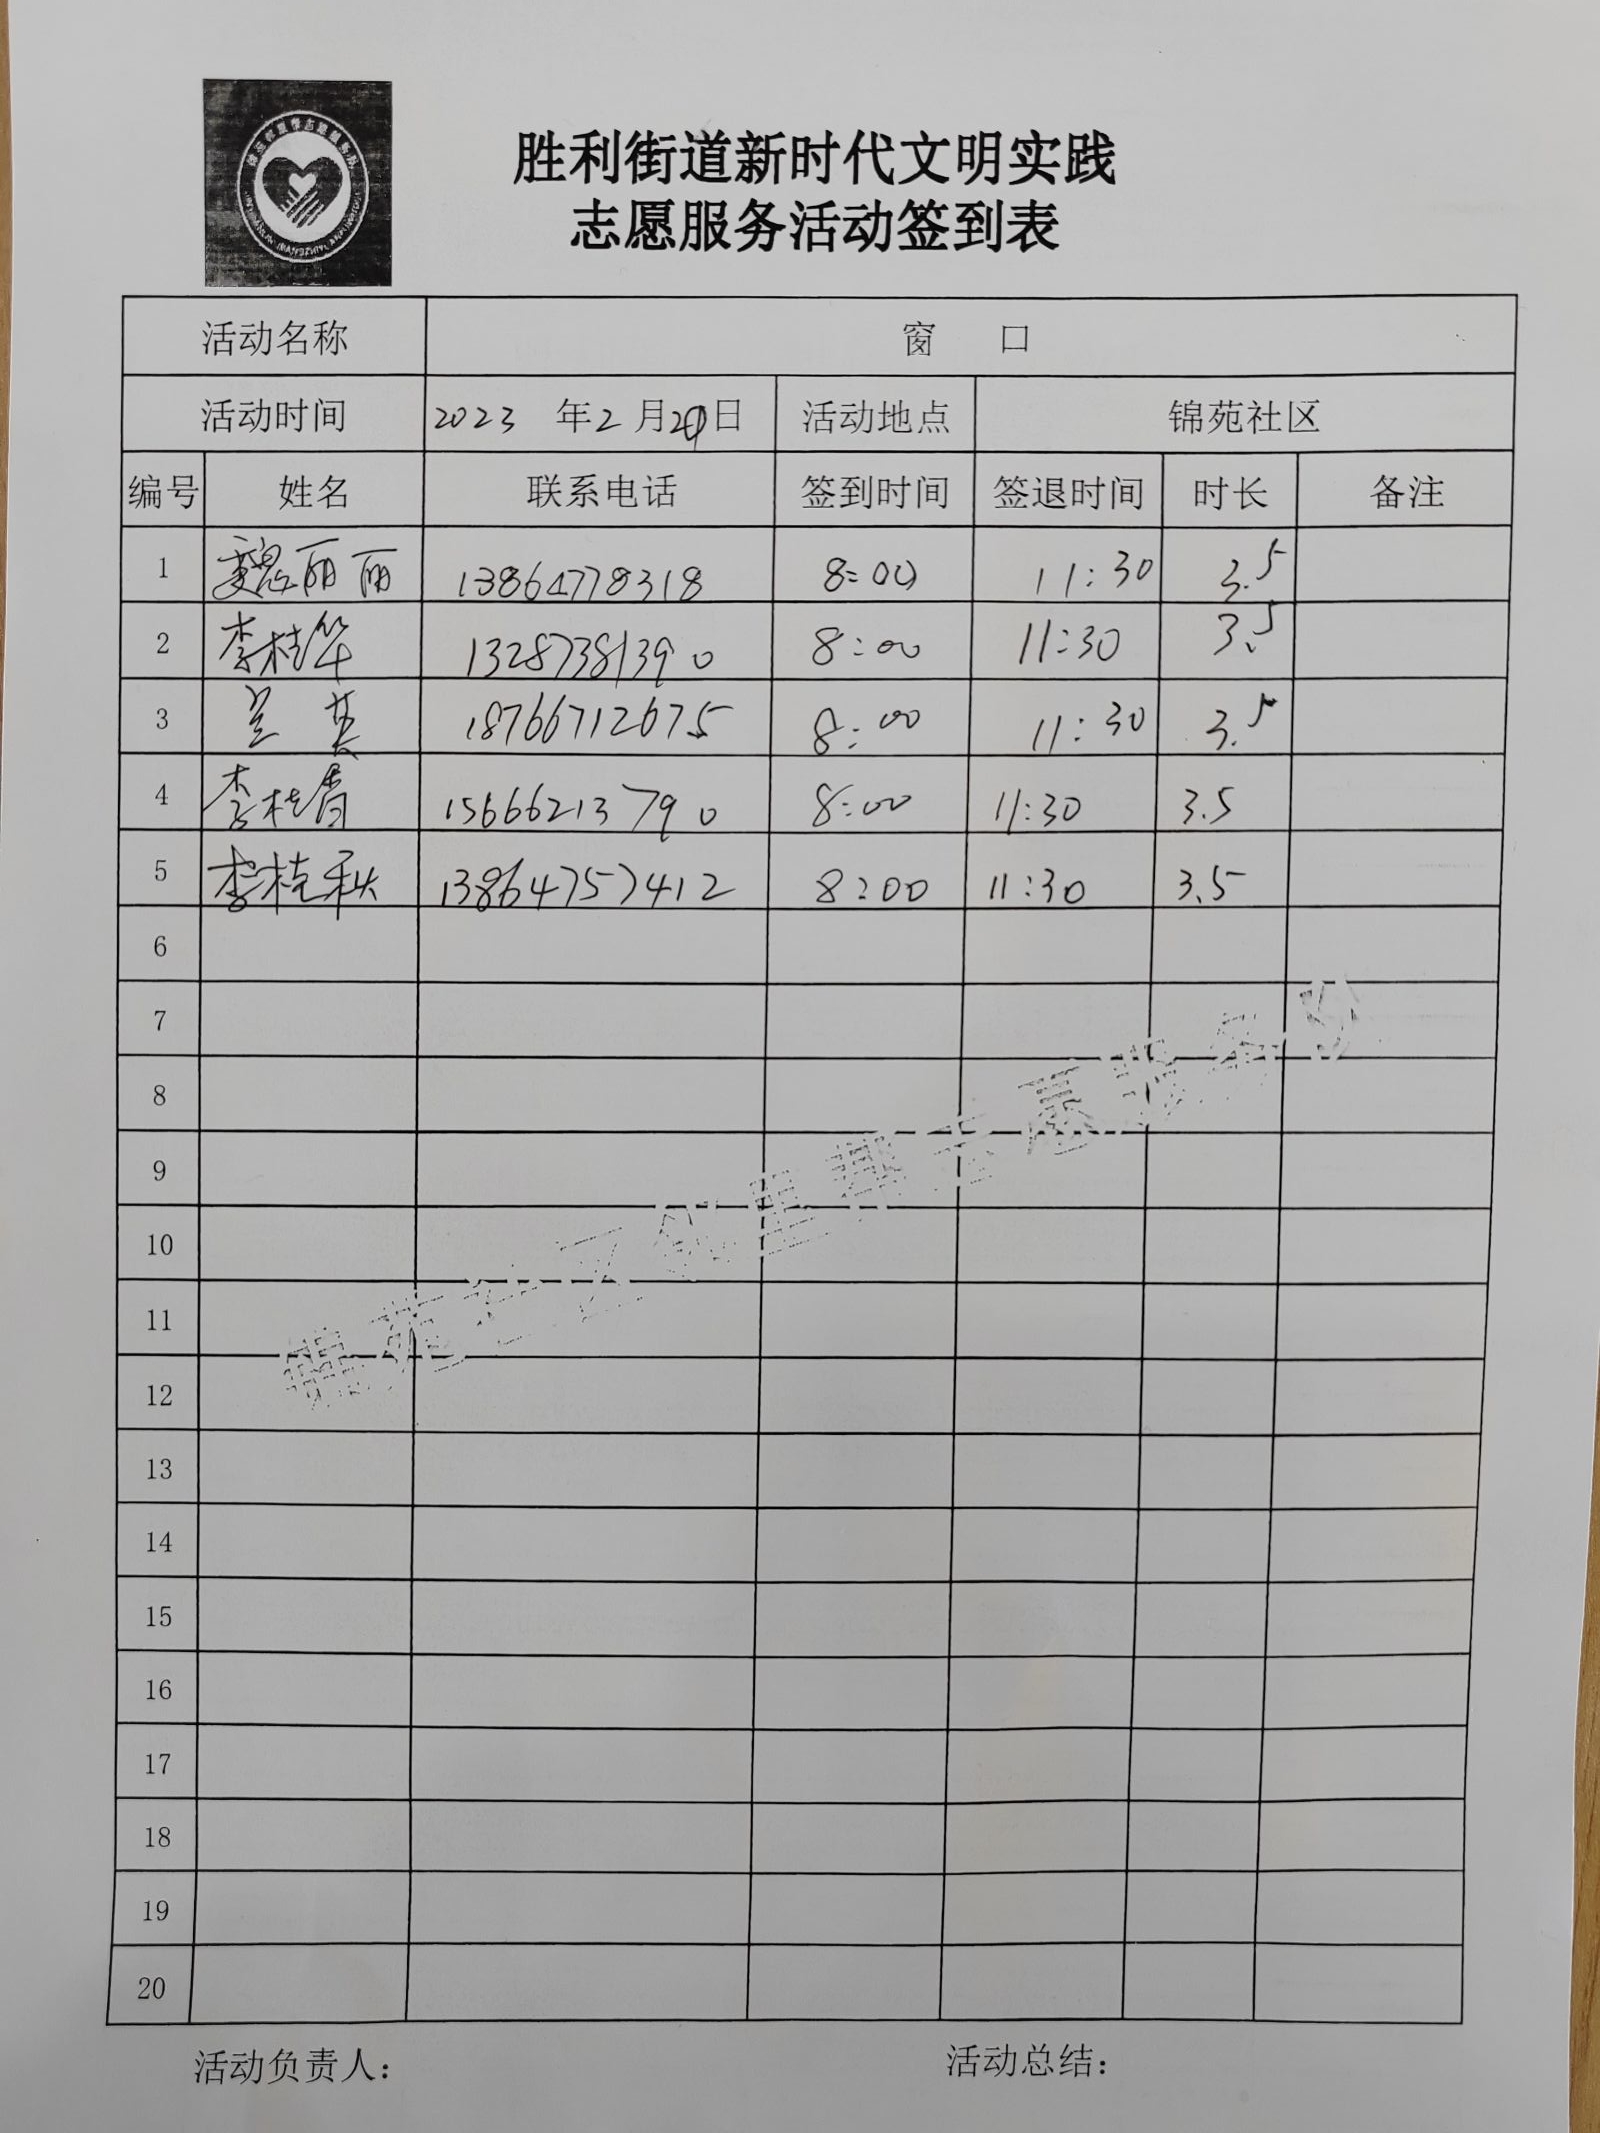 胜利街道新时代文明实践
志愿服务活动签到表
活动名称 窗 口
活动时间 2023 年2月 日 活动地点 锦苑社区
编号 姓名 联系电话 签到时间 签退时间 时长 备注
1 魏丽丽 13864778318 8:00 11:30 3.5
2 李桂华 13287381390 8:00 11:30 3.5
3 兰英 18766712675 8:00 11:30 3.5
4 李桂青 15666213790 8:00 11:30 3.5
5 李桂秋 13864757412 8:00 11:30 3.5
6
7
8
9
10
11
12
13
14
15
16
17
18
19
20
活动负责人:
活动总结: